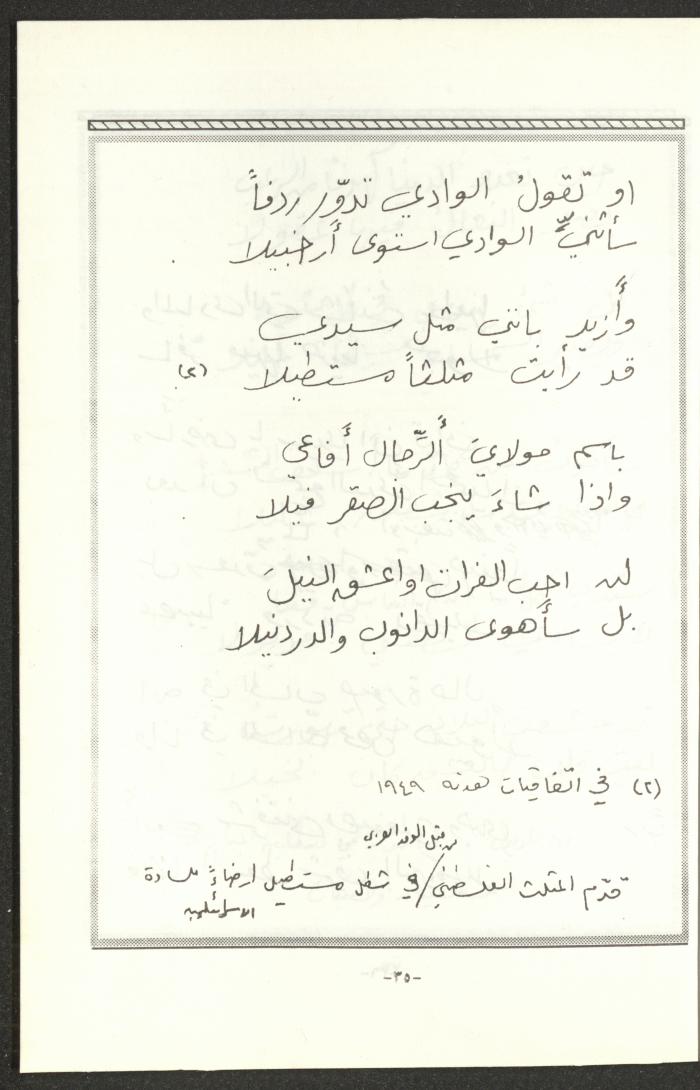 او تقولُ الوادي تدوّر ردفاً
سأثنيّ الوادي استوى أرخبيلا
وأُزيد بانتي مثل سيدي
قد رأيت مثلثاً مستطيلا (٢)
باسم مولايَ ألرِّجال أَفاعي
واذا شاءَ ينجب الصقر فيلا
لن احب الفرات او اعشق النيلَ
بل سأهوى الدانوب والدردنيلا
(٢) في اتفاقيات هدنة ١٩٤٩
من قبل الوفد العربي
قدّم المثلث الفلسطيني / في شكل مستطيل ارضاءً للسادة
الاسرائيليين
-٣٥-